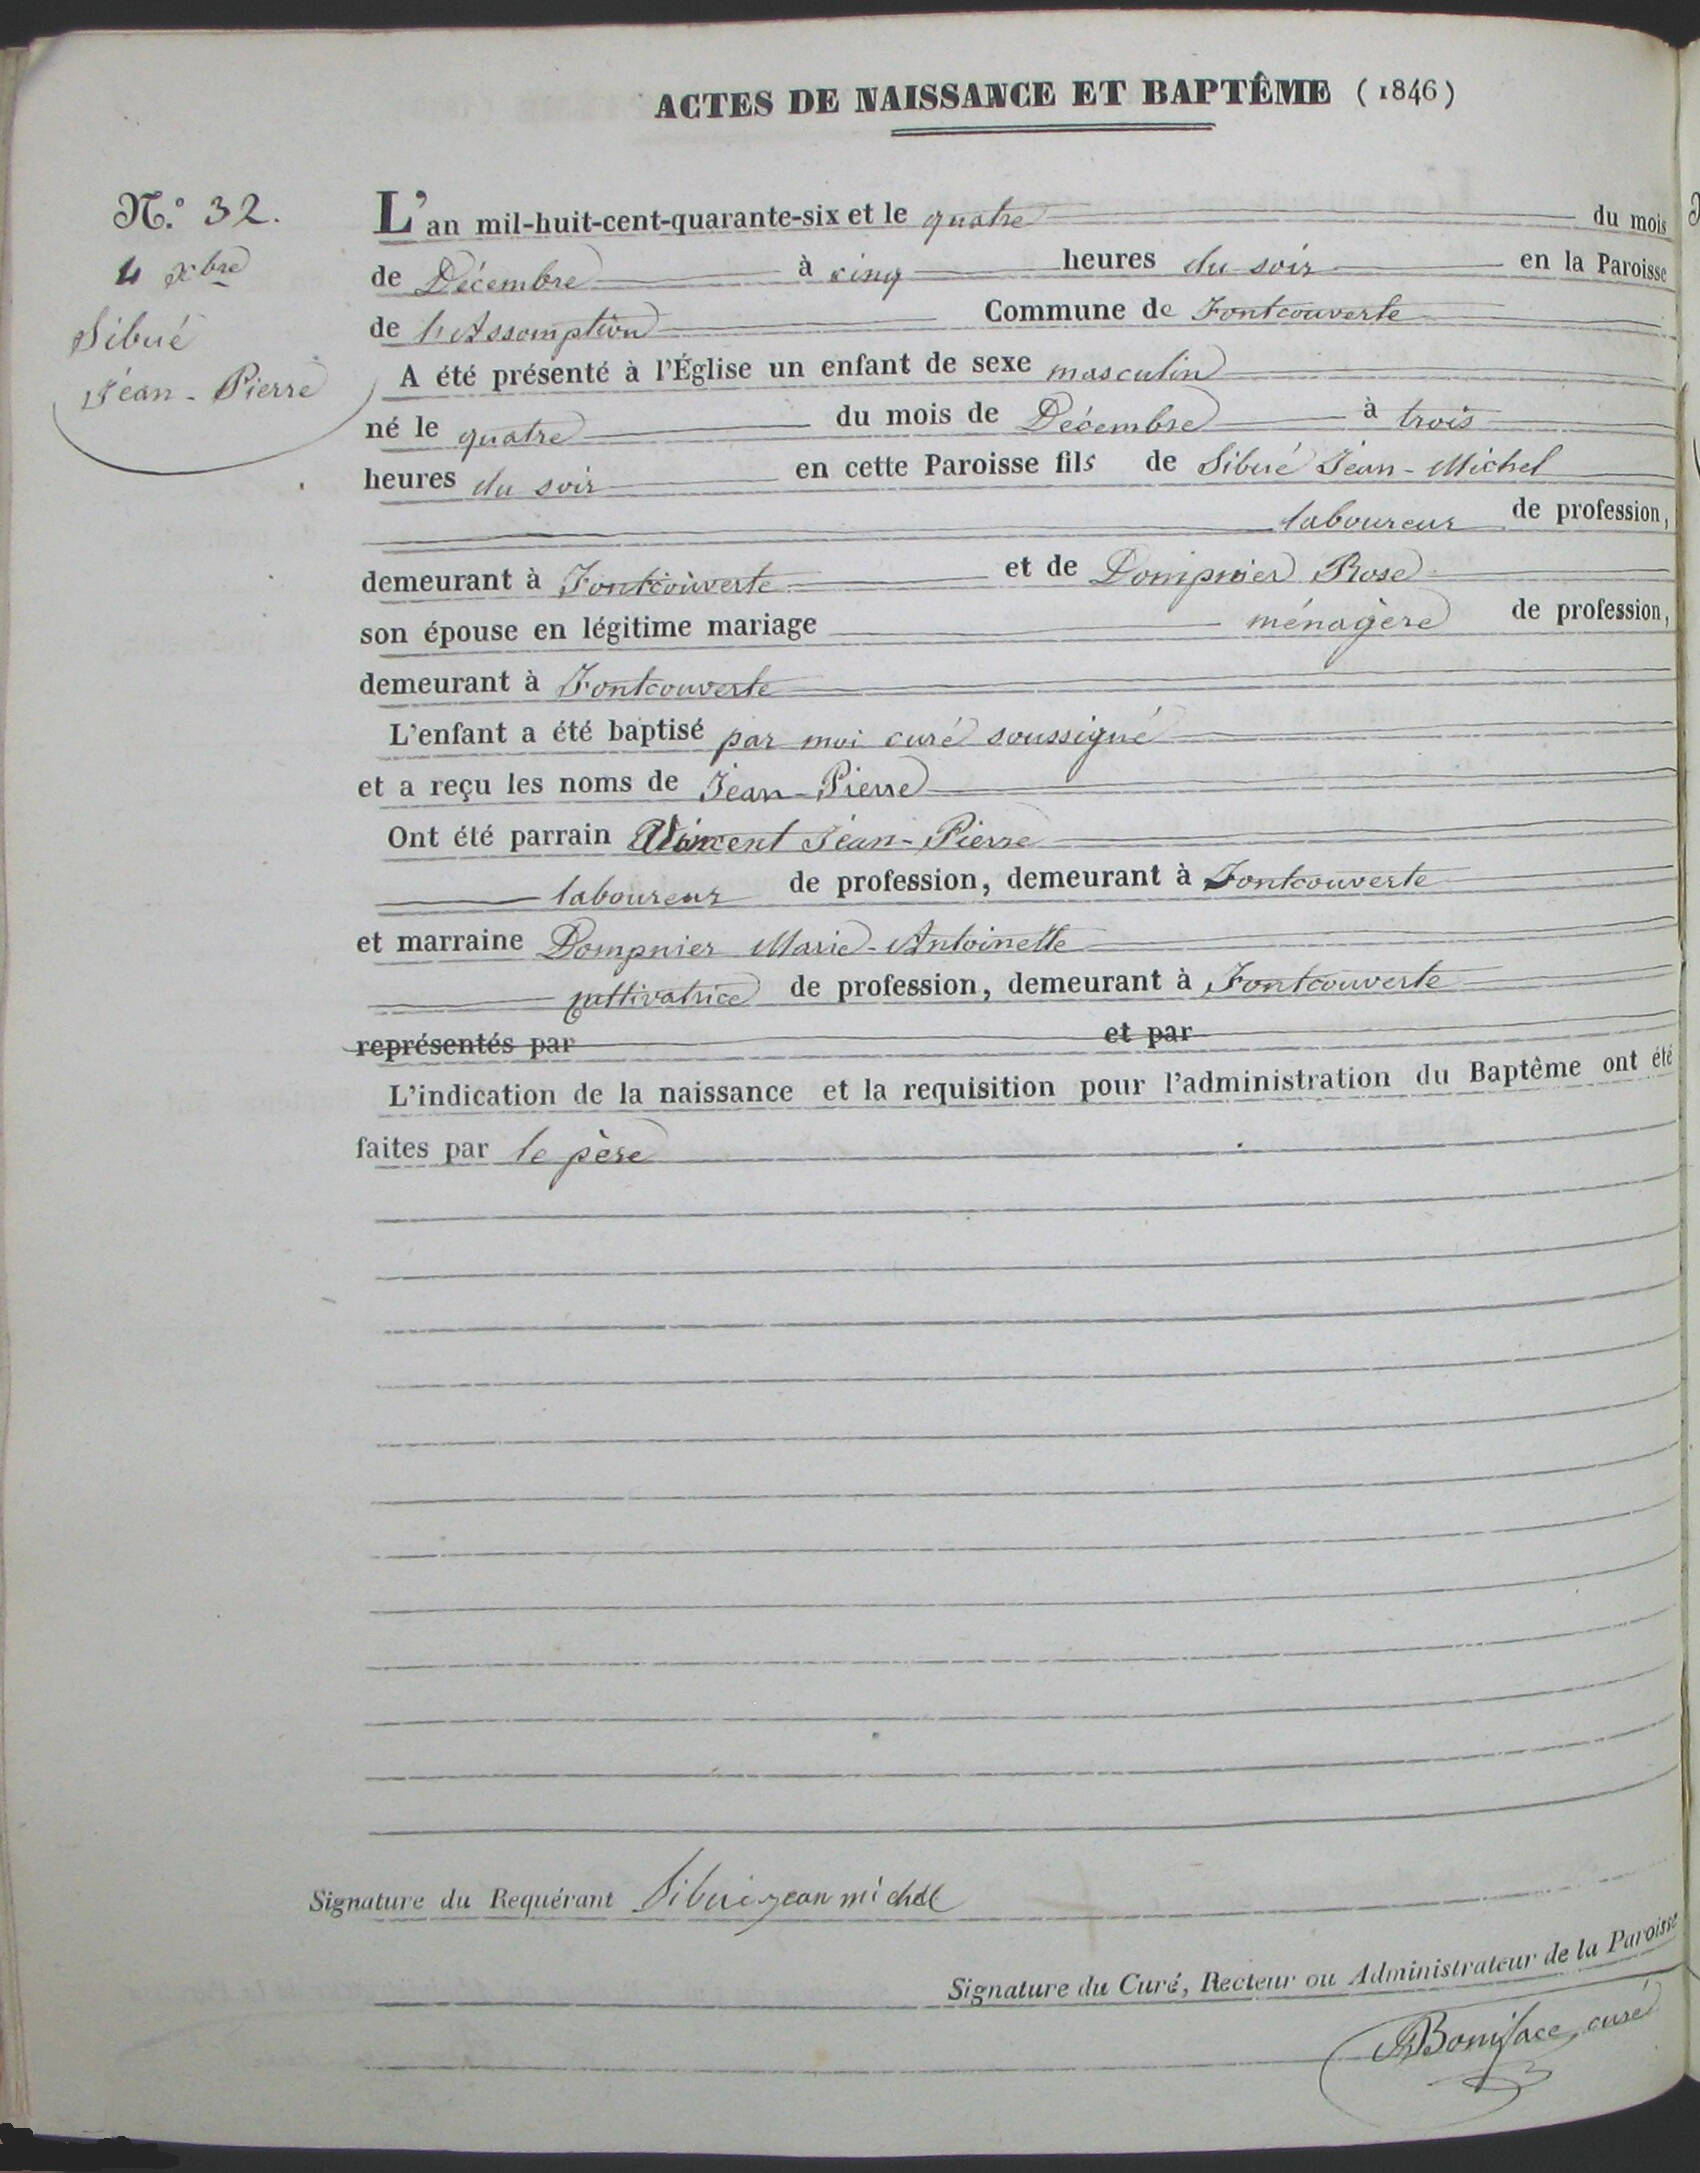 ACTES DE NAISSANCE ET BAPTÊME (1846)
N.º 32.
4 Xbre
Sibué
Jean-Pierre
L'an mil-huit-cent-quarante-six et le quatre du mois
de Décembre à cinq heures du soir en la Paroisse
de l'Assomption Commune de Fontcouverte
A été présenté à l'Église un enfant de sexe masculin
né le quatre du mois de Décembre à trois
heures du soir en cette Paroisse fils de Sibué Jean-Michel
laboureur de profession,
demeurant à Fontcouverte et de Dompnier Rose
son épouse en légitime mariage ménagère de profession,
demeurant à Fontcouverte
L'enfant a été baptisé par moi curé soussigné
et a reçu les noms de Jean-Pierre
Ont été parrain Vincent Jean-Pierre
laboureur de profession, demeurant à Fontcouverte
et marraine Dompnier Marie-Antoinette
cultivatrice de profession, demeurant à Fontcouverte
représentés par et par
L'indication de la naissance et la requisition pour l'administration du Baptême ont été
faites par le père
Signature du Requérant Sibué jean michel
Signature du Curé, Recteur ou Administrateur de la Paroisse
Boniface, curé